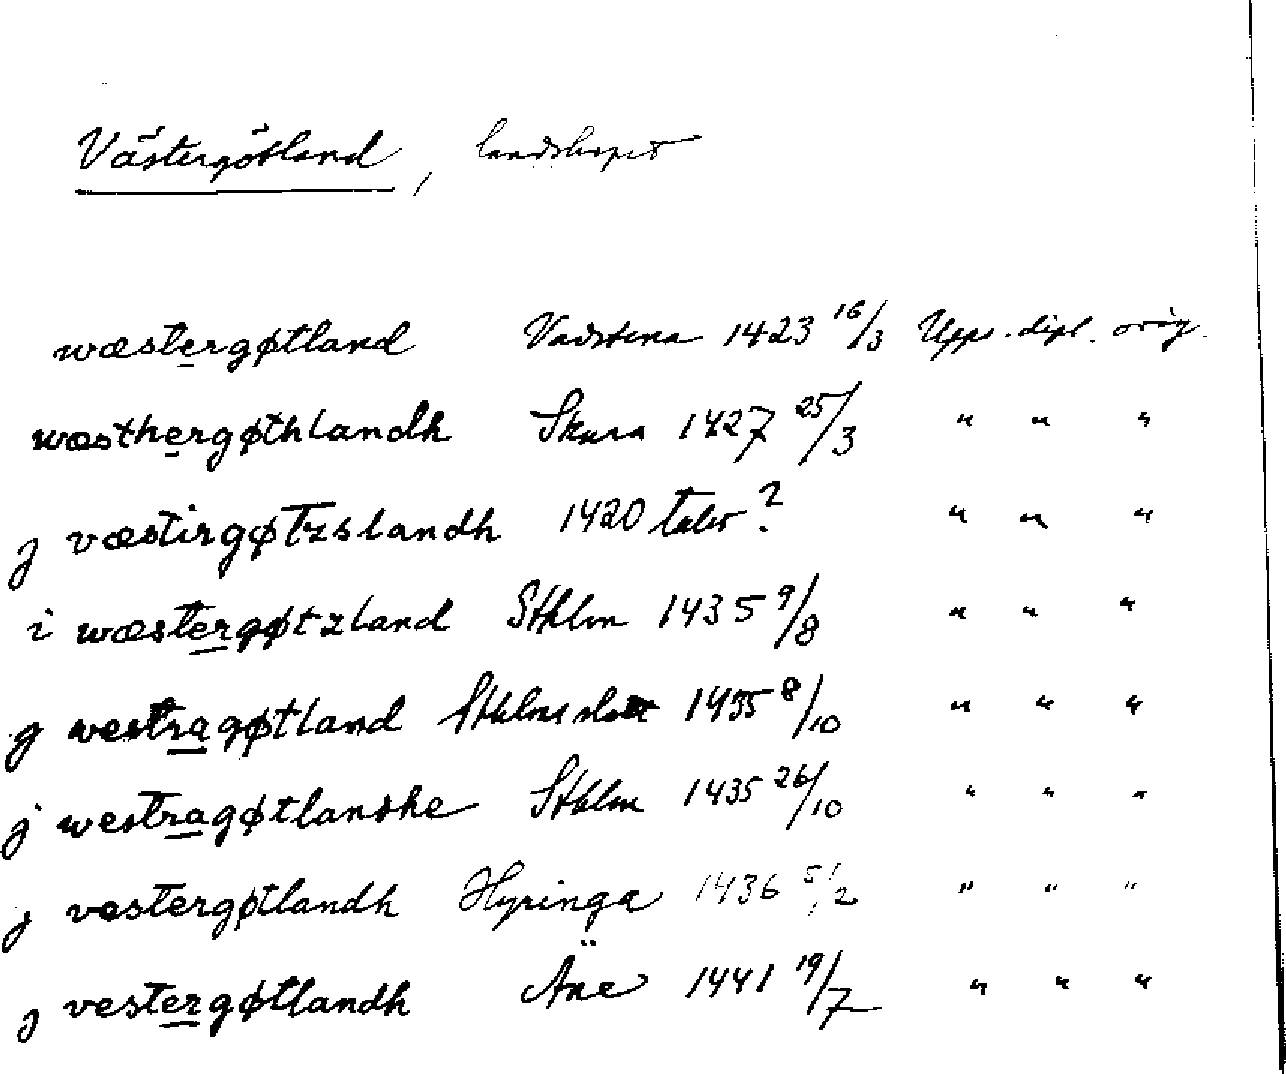 Västergötland, landskapet
wæstergøtland Vadstena 1423 16/3 Upps. dipl. orig.
wæsthergøthlandh Skara 1427 25/3 " " "
j væstirgøtzslandh 1420 talet? " " "
i wæstergøtzland Sthlm 1435 9/8 " " "
j westragøtland Sthlms slott 1435 8/10 " " "
j westragøtlandhe Sthlm 1435 26/10 " " "
j væstergøtlandh Hyringa 1436 5/2 " " "
j vestergøtlandh Äne 1441 19/7 " " "